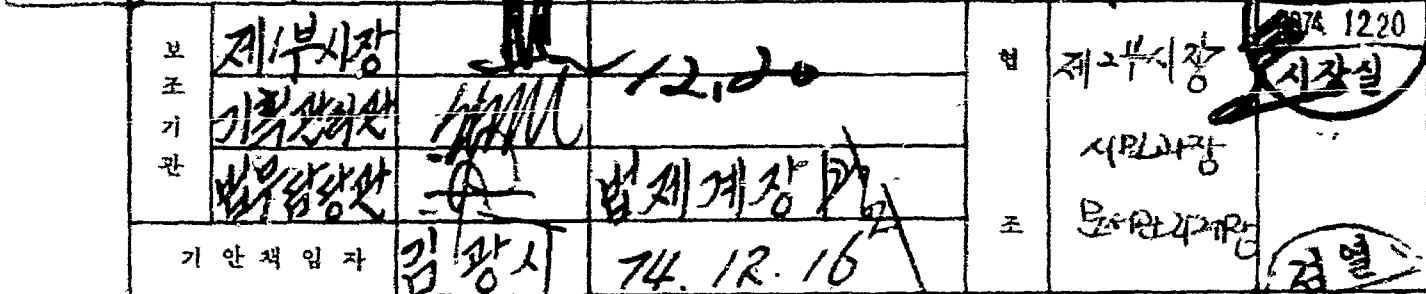 보조기관
제1부시장
12.20
기획관리관
법무담당관
법제계장
기안책임자
김광시
74. 12. 16
협조
제2부시장
시민과장
문서관리계장
1974 12.20
시장실
검열